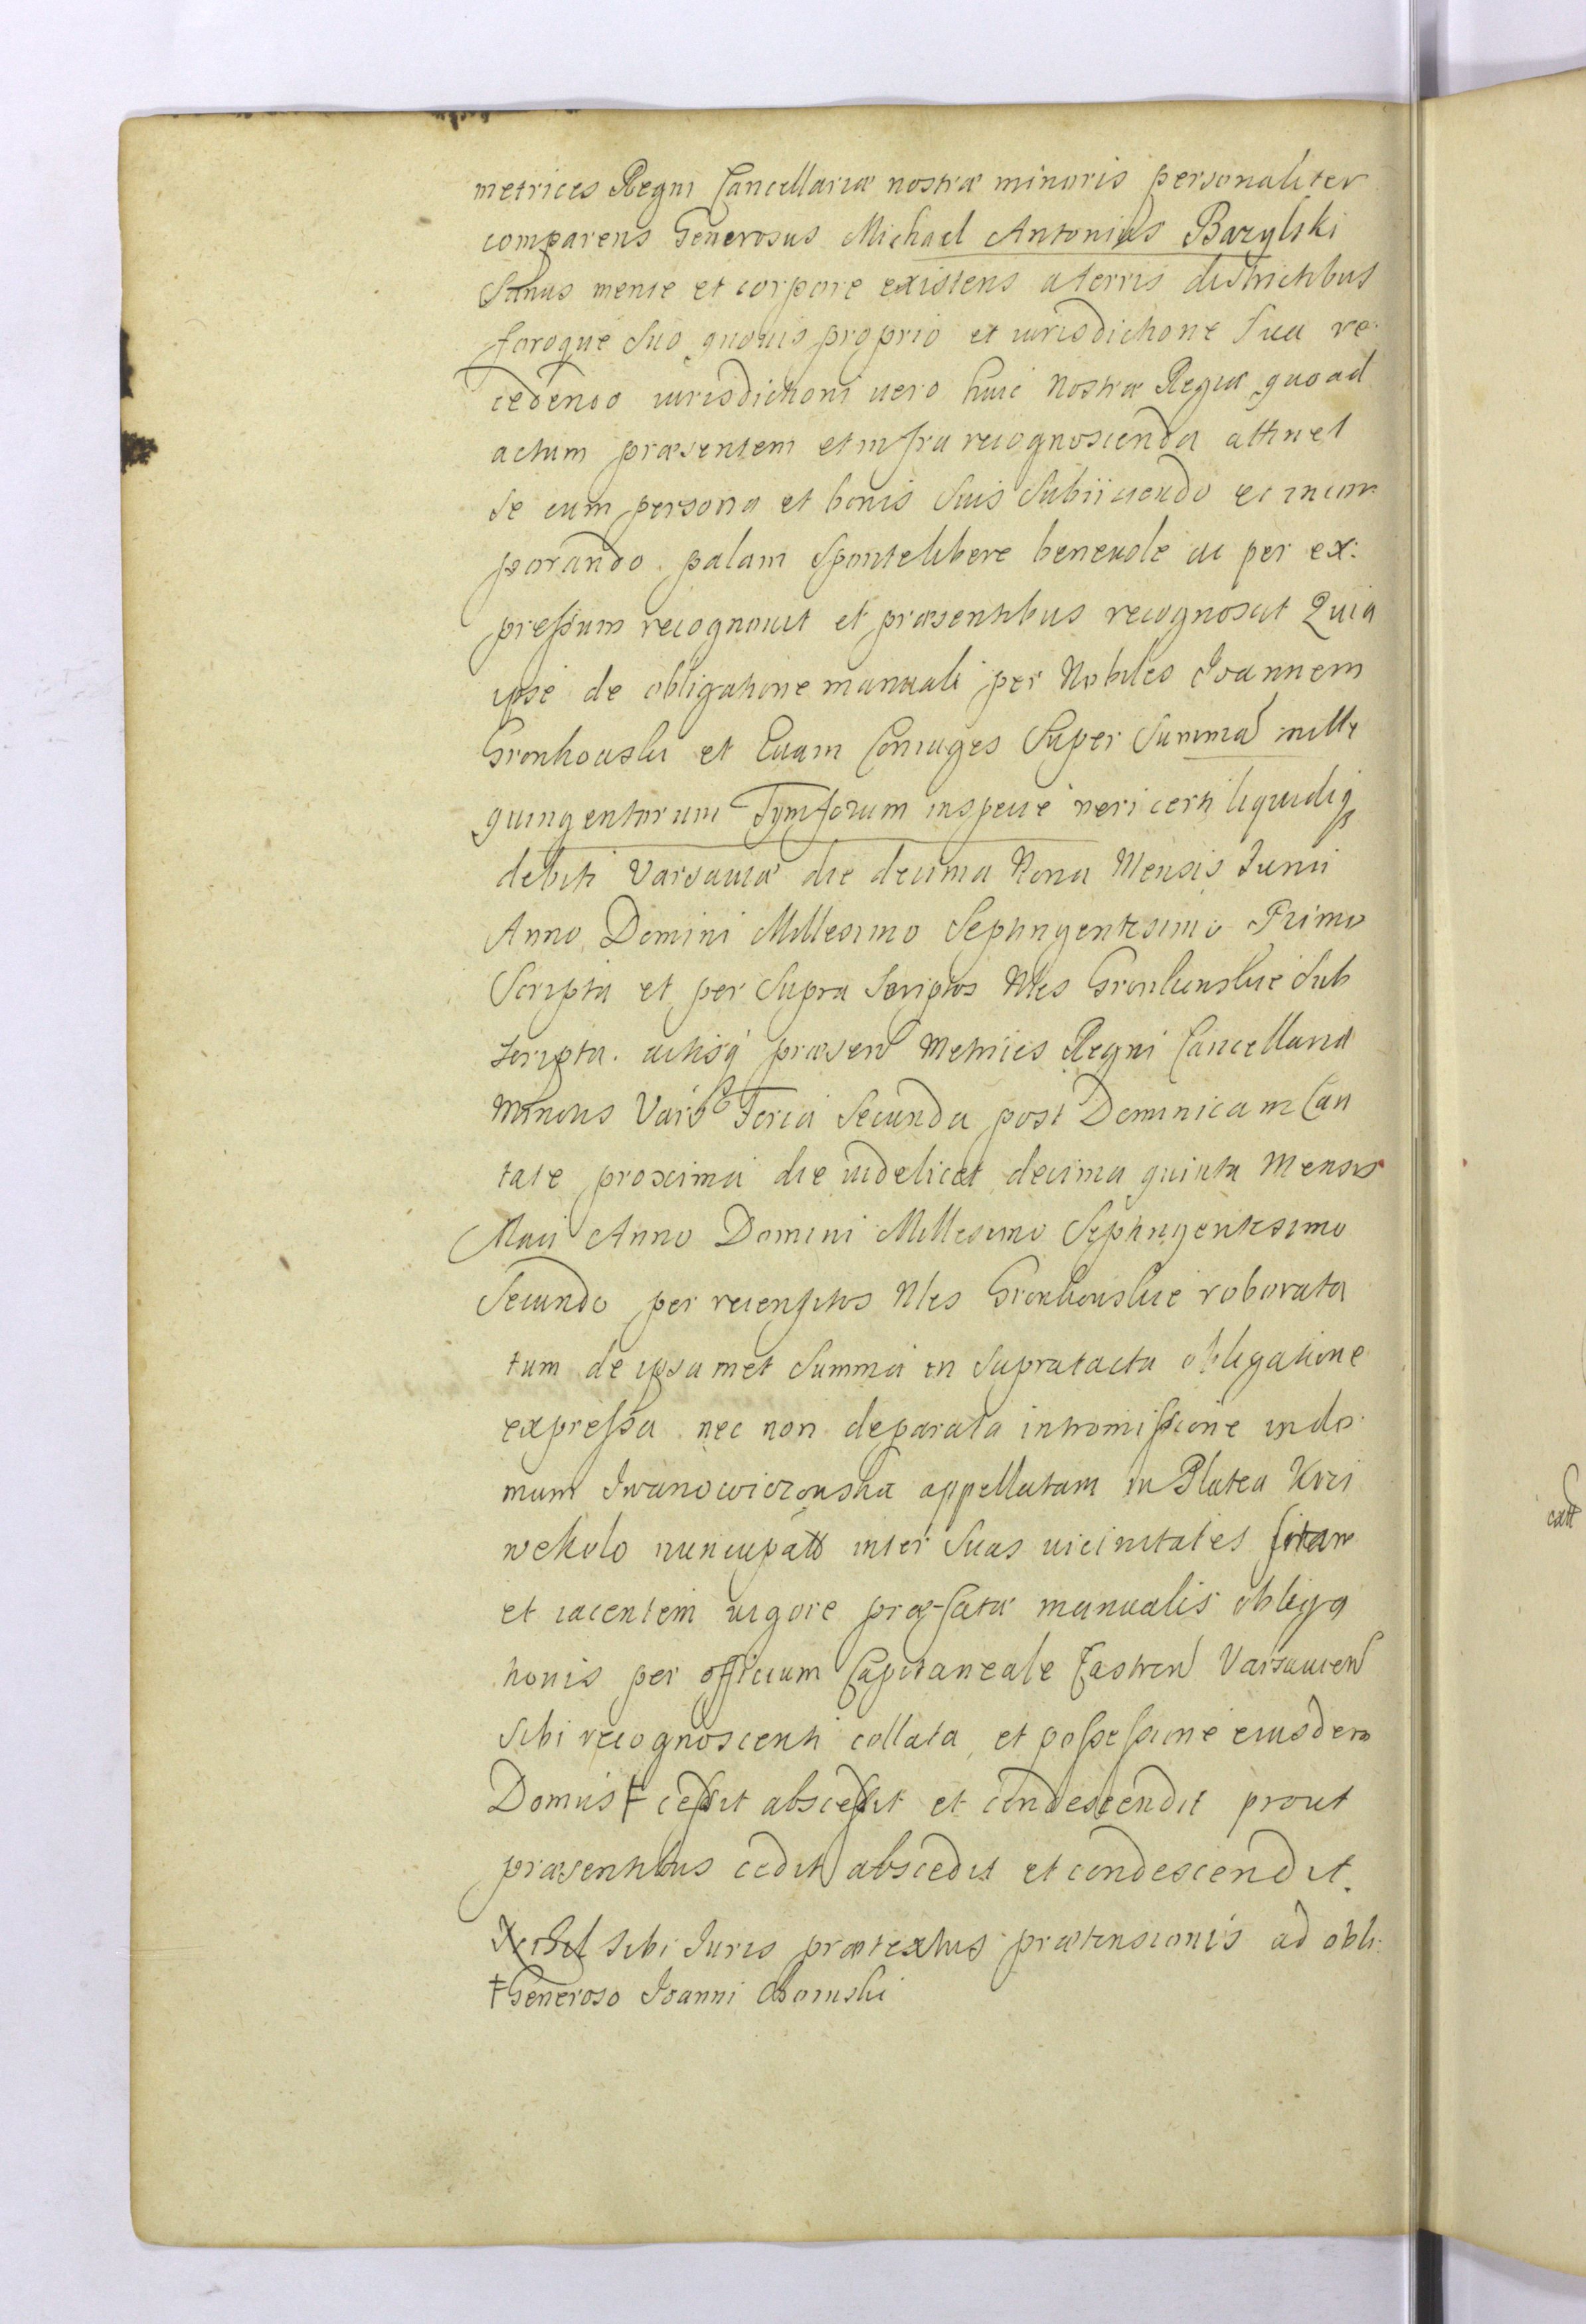 metrices Regni Cancellariæ nostræ minoris personaliter
comparens Generosus Michael Antonius Bazylski
Sanus mente et corpore existens a terris districtibus
foroque Suo quouis proprio et iurisdictione Sua re
cedendo iurisdictioni uero huic Nostræ Regiæ quoad
actum præsentem et infra recognoscenda attinet
Se cum persona et bonis Suis Subiiciendo et incor
porando palam Sponte libere beneuole ac per ex:
pressum recognouit et præsentibus recognoscit Quia
ipse de obligatione manuali per Nobiles Joannem
et Euam Coniuges Super Summã mille
quingentorum Tymforum in specie ueri certi liquidiq
debiti Varsauiæ die decima Nona Mensis Junii
Anno Domini Millesimo Septingentesimo Primo
Scripta et per Supra Scriptos Nles Sub
scripta. actisq præsen Metrices Regni Cancellariæ
Minoris Vars Feria Secunda post Dominicam Can
tate proxima die uidelicet decima quinta Mensis
Maii Anno Domini Millesimo Septingentesimo
Secundo per recensitos Nles roborata
tum de ipsamet Summa in Supratacta obligatione
expressa nec non de parata intromissione in do
mum appellatam in Platea Krzi
wekolo nuncupatt inter Suas uicinitates sitam
et iacentem uigore præfatæ manualis obliga
tionis per officium Capitaneale Castren Varsauien
Sibi recognoscenti collata et possessione eiusdem
Domus ‡ cessit abscessit et condescendit prout
præsentibus cedit abscedit et condescendit.
Nihil Sibi Iuris prætextus prætensionis ad obli:
‡ Generoso Joanni
catt